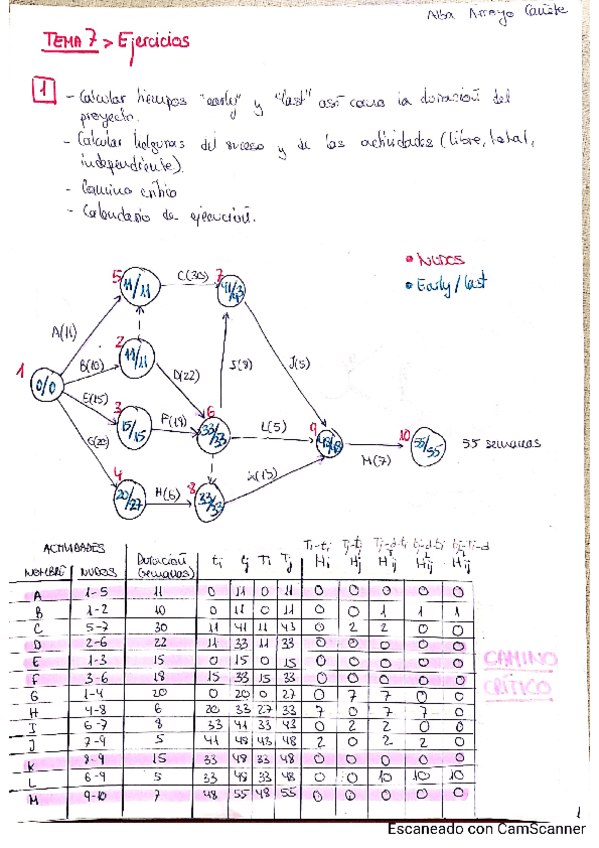 Alba Arroyo Cañete
TEMA 7 > Ejercicios
1
- Calcular tiempos "early" y "last" así como la duración del
proyecto.
- Calcular holguras del suceso y de las actividades (libre, total,
independiente).
- Camino crítico
- Calendario de ejecución.
• NUDOS
• Early/last
5 11/11 C(30) 7 41/43
A(11)
2 11/11
1 0/0 B(10) D(22) J(8) J(5)
E(15) 3 15/15 F(18) 6 33/33 L(5) 9 48/48 M(7) 10 55/55 55 semanas
G(20)
4 20/27 H(6) 8 33/33 (15)
ACTIVIDADES
NOMBRE NUDOS Duración (semanas) ti tj Ti Tj Hi Hj Hij Hij Hij
A 1-5 11 0 11 0 11 0 0 0 0 0
B 1-2 10 0 11 0 11 0 0 1 1 1
C 5-7 30 11 41 11 43 0 2 2 0 0
D 2-6 22 11 33 11 33 0 0 0 0 0
E 1-3 15 0 15 0 15 0 0 0 0 0
F 3-6 18 15 33 15 33 0 0 0 0 0
G 1-4 20 0 20 0 27 0 7 7 0 0
H 4-8 6 20 33 27 33 7 0 7 7 0
I 6-7 8 33 41 33 43 0 2 2 0 0
J 7-9 5 41 48 43 48 2 0 2 2 0
K 8-9 15 33 48 33 48 0 0 0 0 0
L 6-9 5 33 48 33 48 0 0 10 10 10
M 9-10 7 48 55 48 55 0 0 0 0 0
CAMINO
CRÍTICO
1
Escaneado con CamScanner